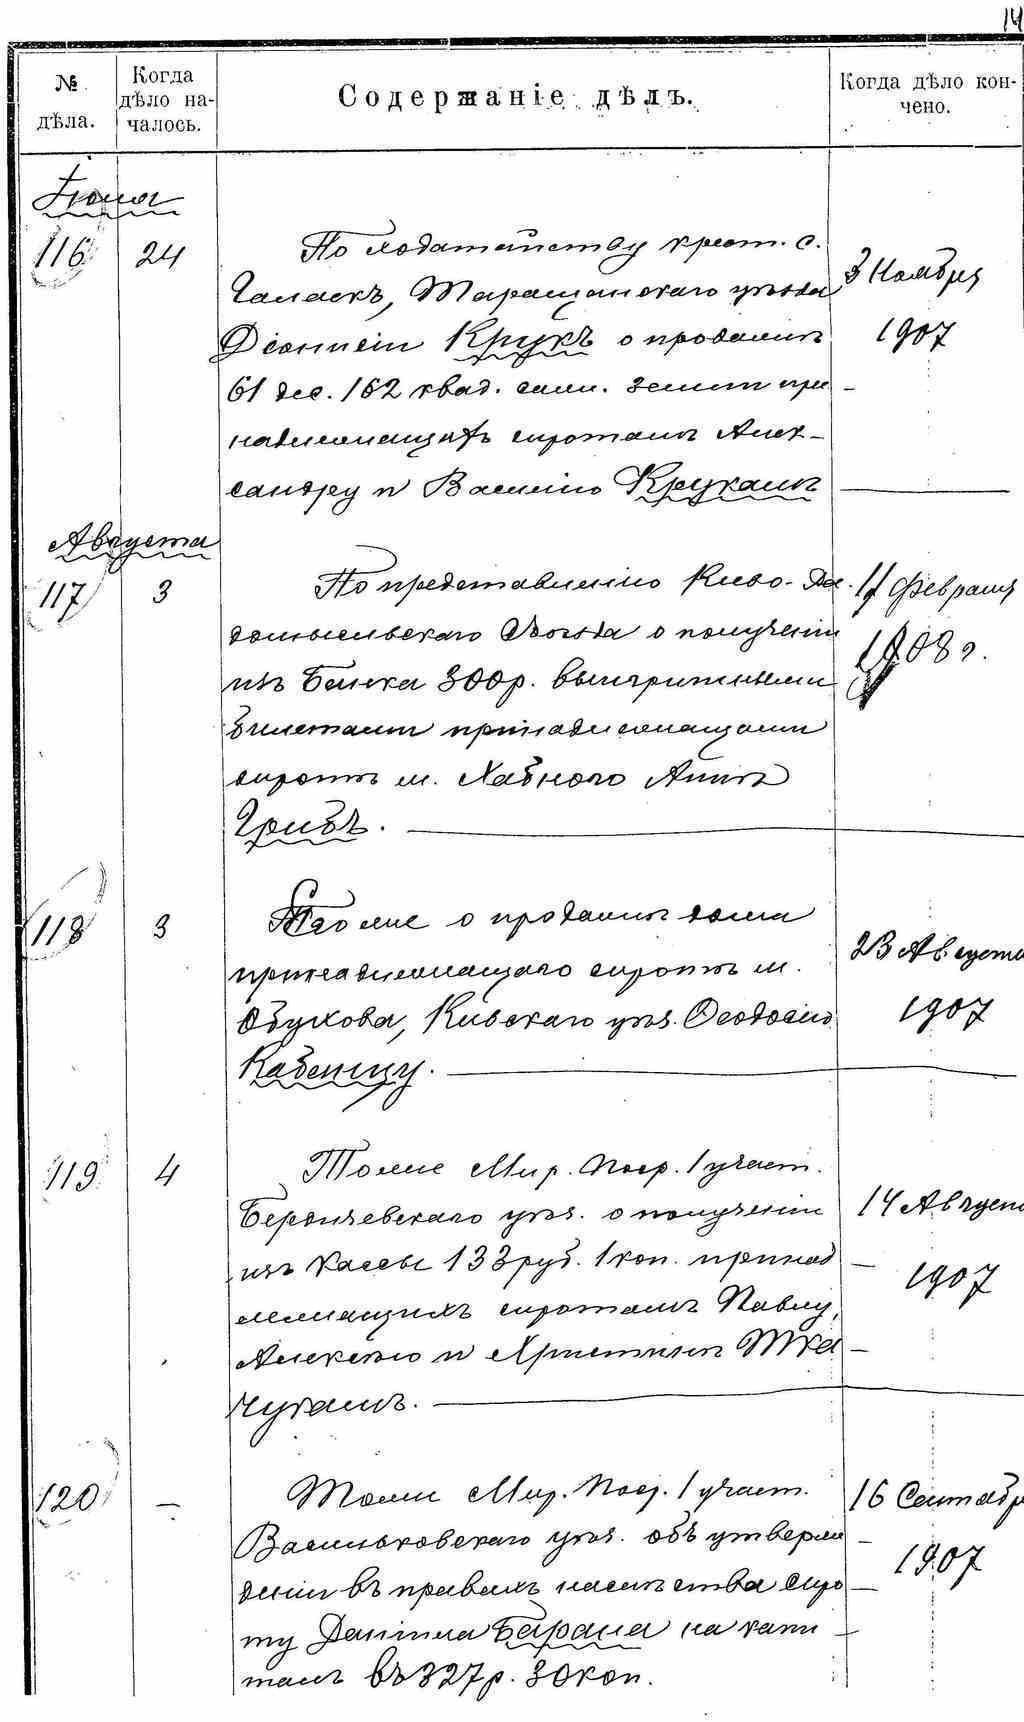 14
№ дѣла.
Когда дѣло началось.
Содержаніе дѣлъ.
Когда дѣло кончено.
Іюля
116 24 По ходатайству крест. с.
Таращанскаго уѣзда 3 Ноября
Діонисія Крукъ о продажѣ 1907
61 дес. 162 квад. саж. земли при
надлежащихъ сиротамъ Алек-
сандру и Василію Крукамъ
Августа
117 3 По представленію Кіево- 11 Февраля
Съѣзда о полученіи 1908 г.
изъ Банка 300р. выигрышными
билетами принадлежащими
сиротѣ м. Хабного Аннѣ
Грибъ.
118 3 Тоже о продажѣ дома
принадлежащаго сиротѣ м. 23 Августа
Обухова, Кіевскаго уѣз. Ѳеодосію 1907
Кабенцу.
119 4 Тоже Мир. Поср. 1 участ.
Бердичевскаго уѣз. о полученіи 14 Август
изъ кассы 133 руб. 1 коп. принад 1907
лежащихъ сиротамъ Павлу,
Алексѣю и Христинѣ Тка
чукамъ.
120 — Тоже Мир. Поср. 1 участ. 16 Сентябр
Васильковскаго уѣз. объ утверж 1907
деніи въ правахъ наслѣдства сиро
ту Даніила Барана на капи
талъ въ 327 р. 30 коп.